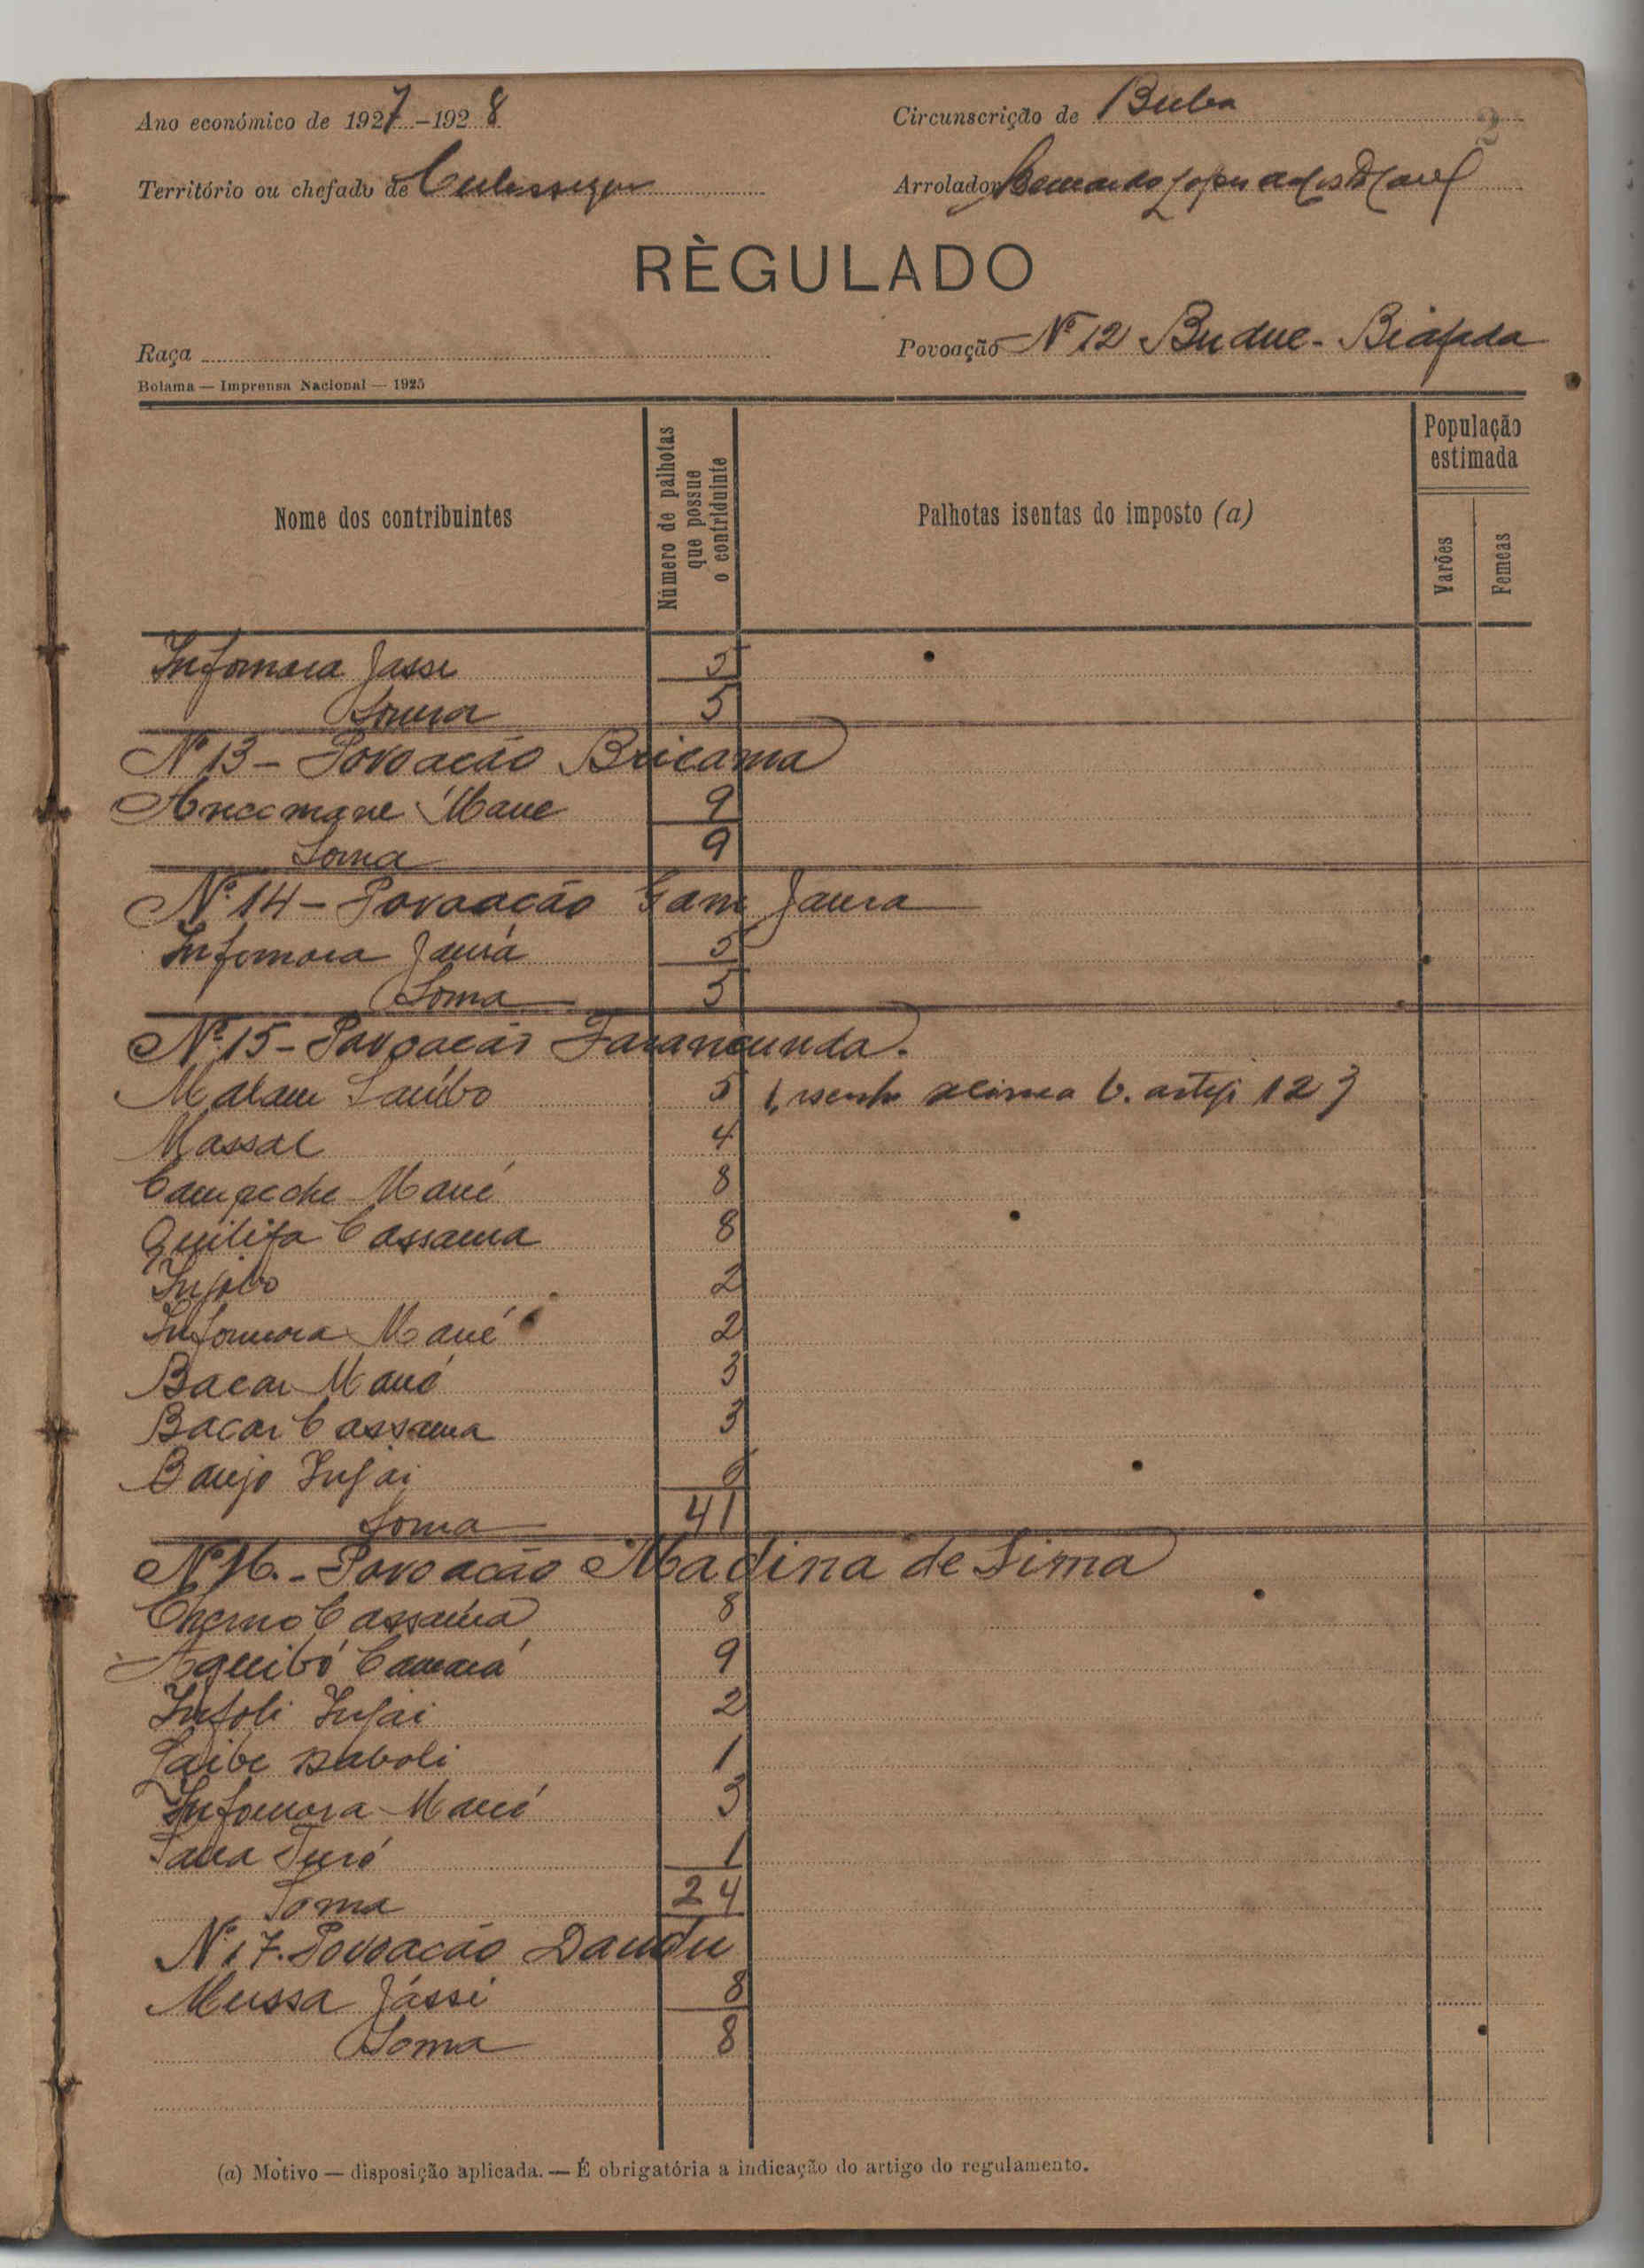 Ano económico de 1927-1928
Circunscrição de Buba
2
Território ou chefado de
Arrolador Bernardo Lopes
RÈGULADO
Raça
Povoação Nº 12 Budue - Biafada
Bolama — Imprensa Nacional — 1925
Nome dos contribuintes
Número de palhotas que possue o contriduinte
Palhotas isentas do imposto (a)
População estimada
Varões
Femeas
Infomara Jassi 5
Soma 5
Nº 13 - Povoação Bricama
Mané 9
Soma 9
Nº 14 - Povoação Gam Jaura
Infomara Jaurá 5
Soma 5
Nº 15 - Povoação Farancunda.
Malam Sambo 5 (1 isento alinea b. artigo 12)
Massal 4
Campeche Mané 8
Quilifa Cassama 8
Injobo 2
Infomara Mané 2
Bacar Mané 3
Bacar Cassama 3
Banjo Injai 6
Soma 41
Nº 16. - Povoação Madina de Sima
Cherno Cassamá 8
Aquibó Camará 9
Infoli Injai 2
Laibe Daboli 1
Infomara Mané 3
Sana Turé 1
Soma 24
Nº 17. Povoação Dandu
Mussa Jássi 8
Soma 8
(a) Motivo — disposição aplicada. — É obrigatória a indicação do artigo do regulamento.